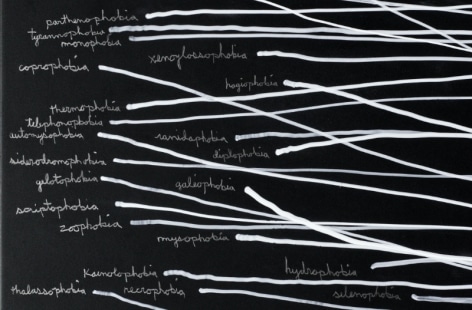 parthenophobia
tyrannophobia
monophobia
xenoglossophobia
coprophobia
hagiophobia
thermophobia
telephonophobia
automysophobia
ranidaphobia
diplophobia
siderodromophobia
gelotophobia
galeophobia
scriptophobia
zoophobia
mysophobia
hydrophobia
Kainolophobia
thalassophobia
necrophobia
selenophobia